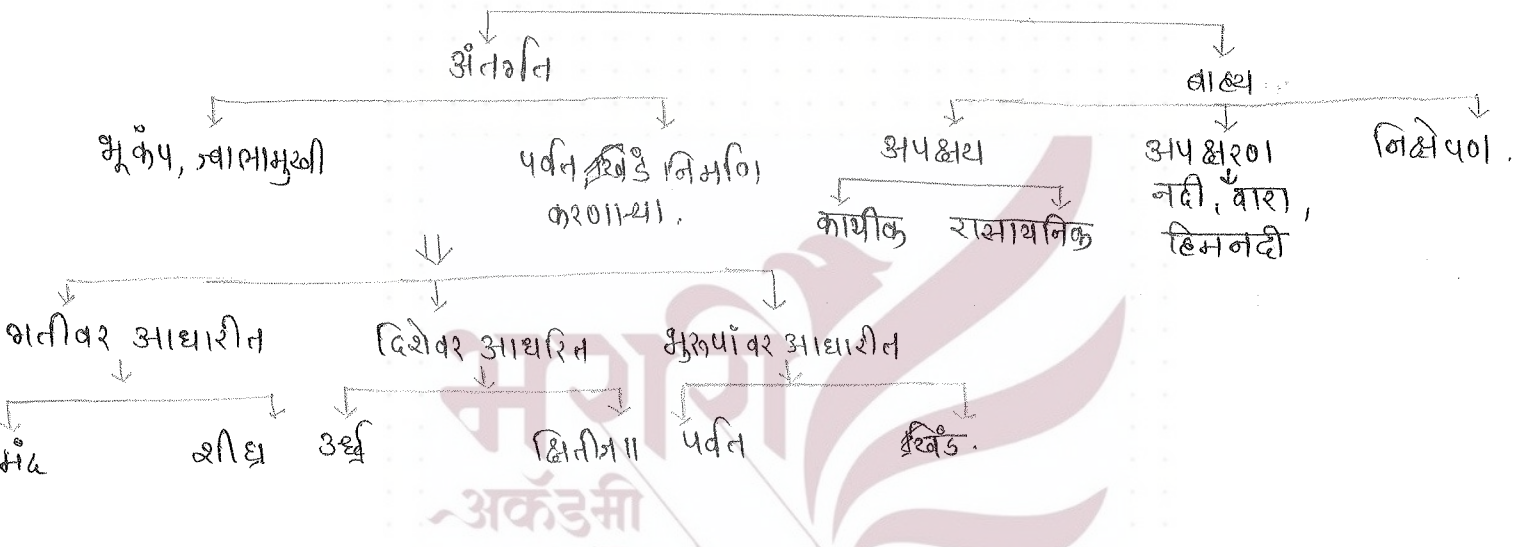 अंतर्गत
बाह्य
भूकंप, ज्वालामुखी
पर्वत, खंड निर्माण
करणाऱ्या.
अपक्षय
कायीक रासायनिक
अपक्षरण
नदी, वारा,
हिमनदी
निक्षेपण.
गतीवर आधारीत
दिशेवर आधारित
भुरुपांवर आधारीत
मंद
शीघ्र
उर्ध्व
क्षितीज॥
पर्वत
खंड.
अकॅडमी